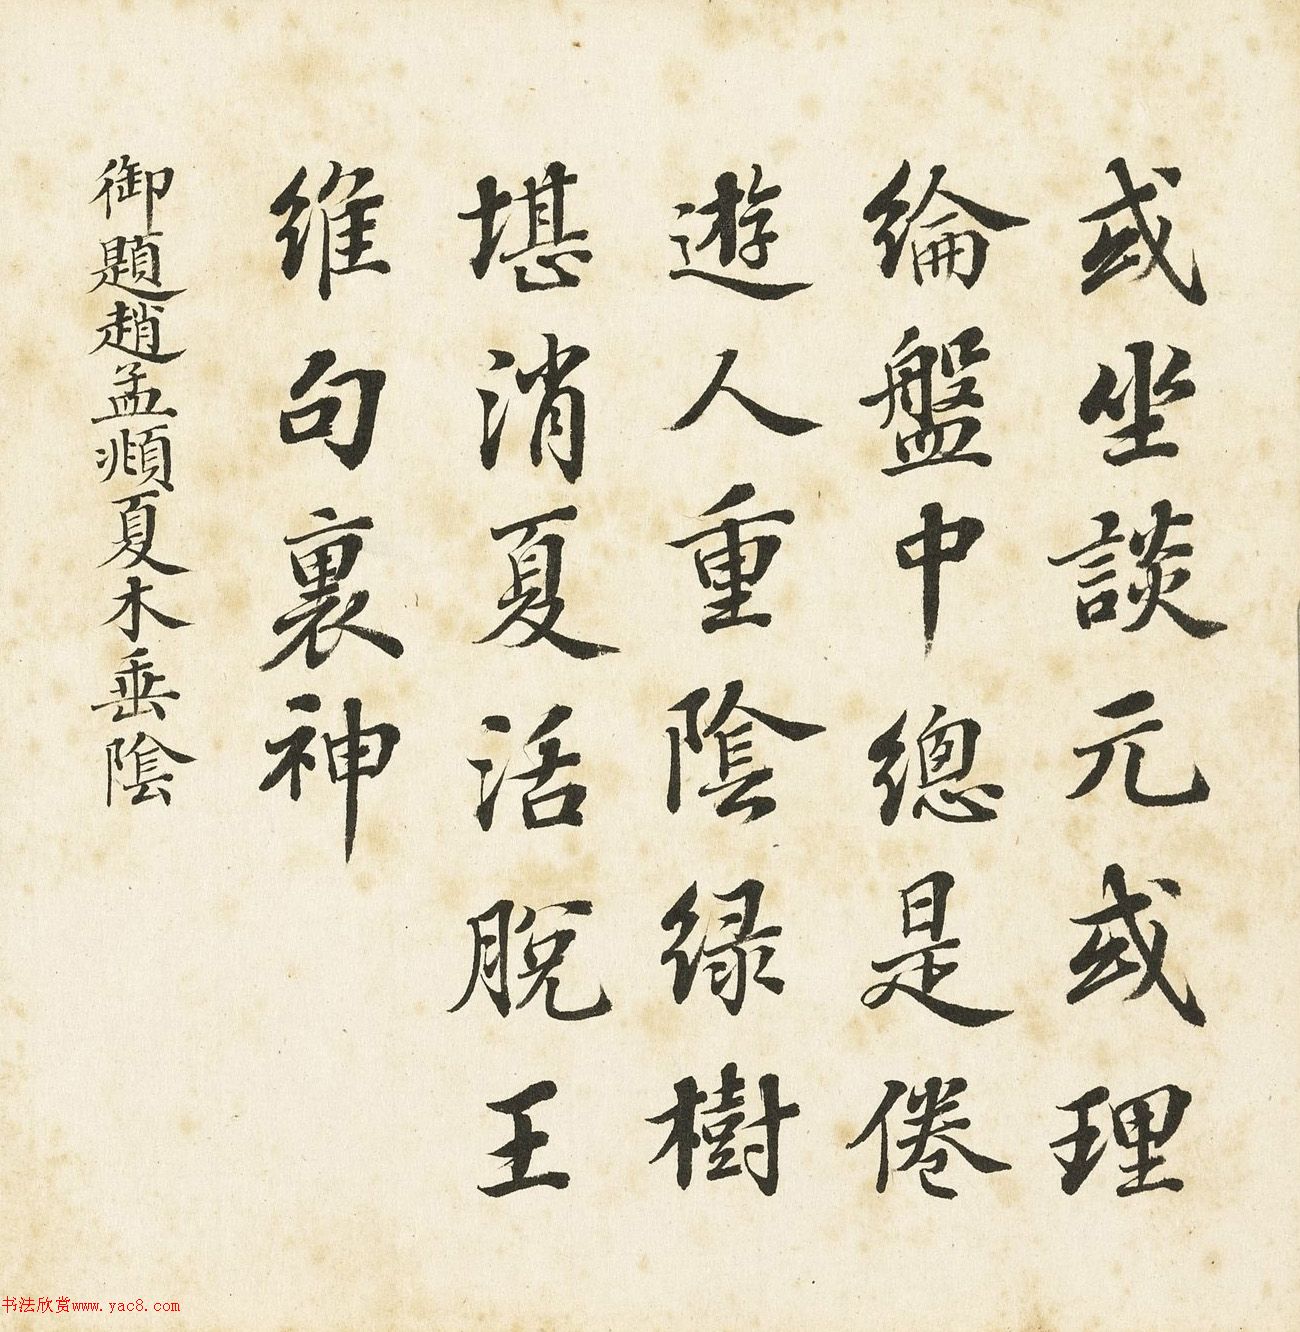 或坐談元或理
綸盤中總是倦
遊人重陰緑樹
堪消夏活脫王
維句裏神
御題趙孟頫夏木垂陰
书法欣赏www.yac8.com